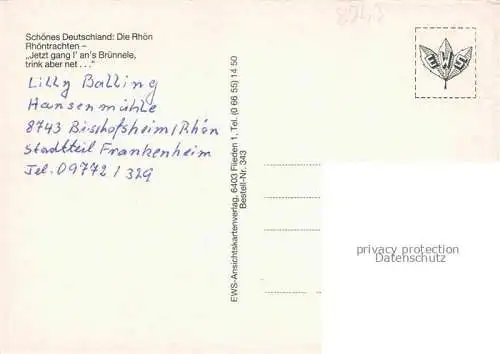 Schönes Deutschland: Die Rhön
Rhöntrachten –
„Jetzt gang I' an's Brünnele,
trink aber net . . ."
Lilly Balling
Hansenmühle
8743 Bischofsheim/Rhön
Stadtteil Frankenheim
Tel. 09772 / 329
EWS-Ansichtskartenverlag, 6403 Flieden 1, Tel. (0 66 55) 14 50
Bestell-Nr. 343
EWS
privacy protection
Datenschutz